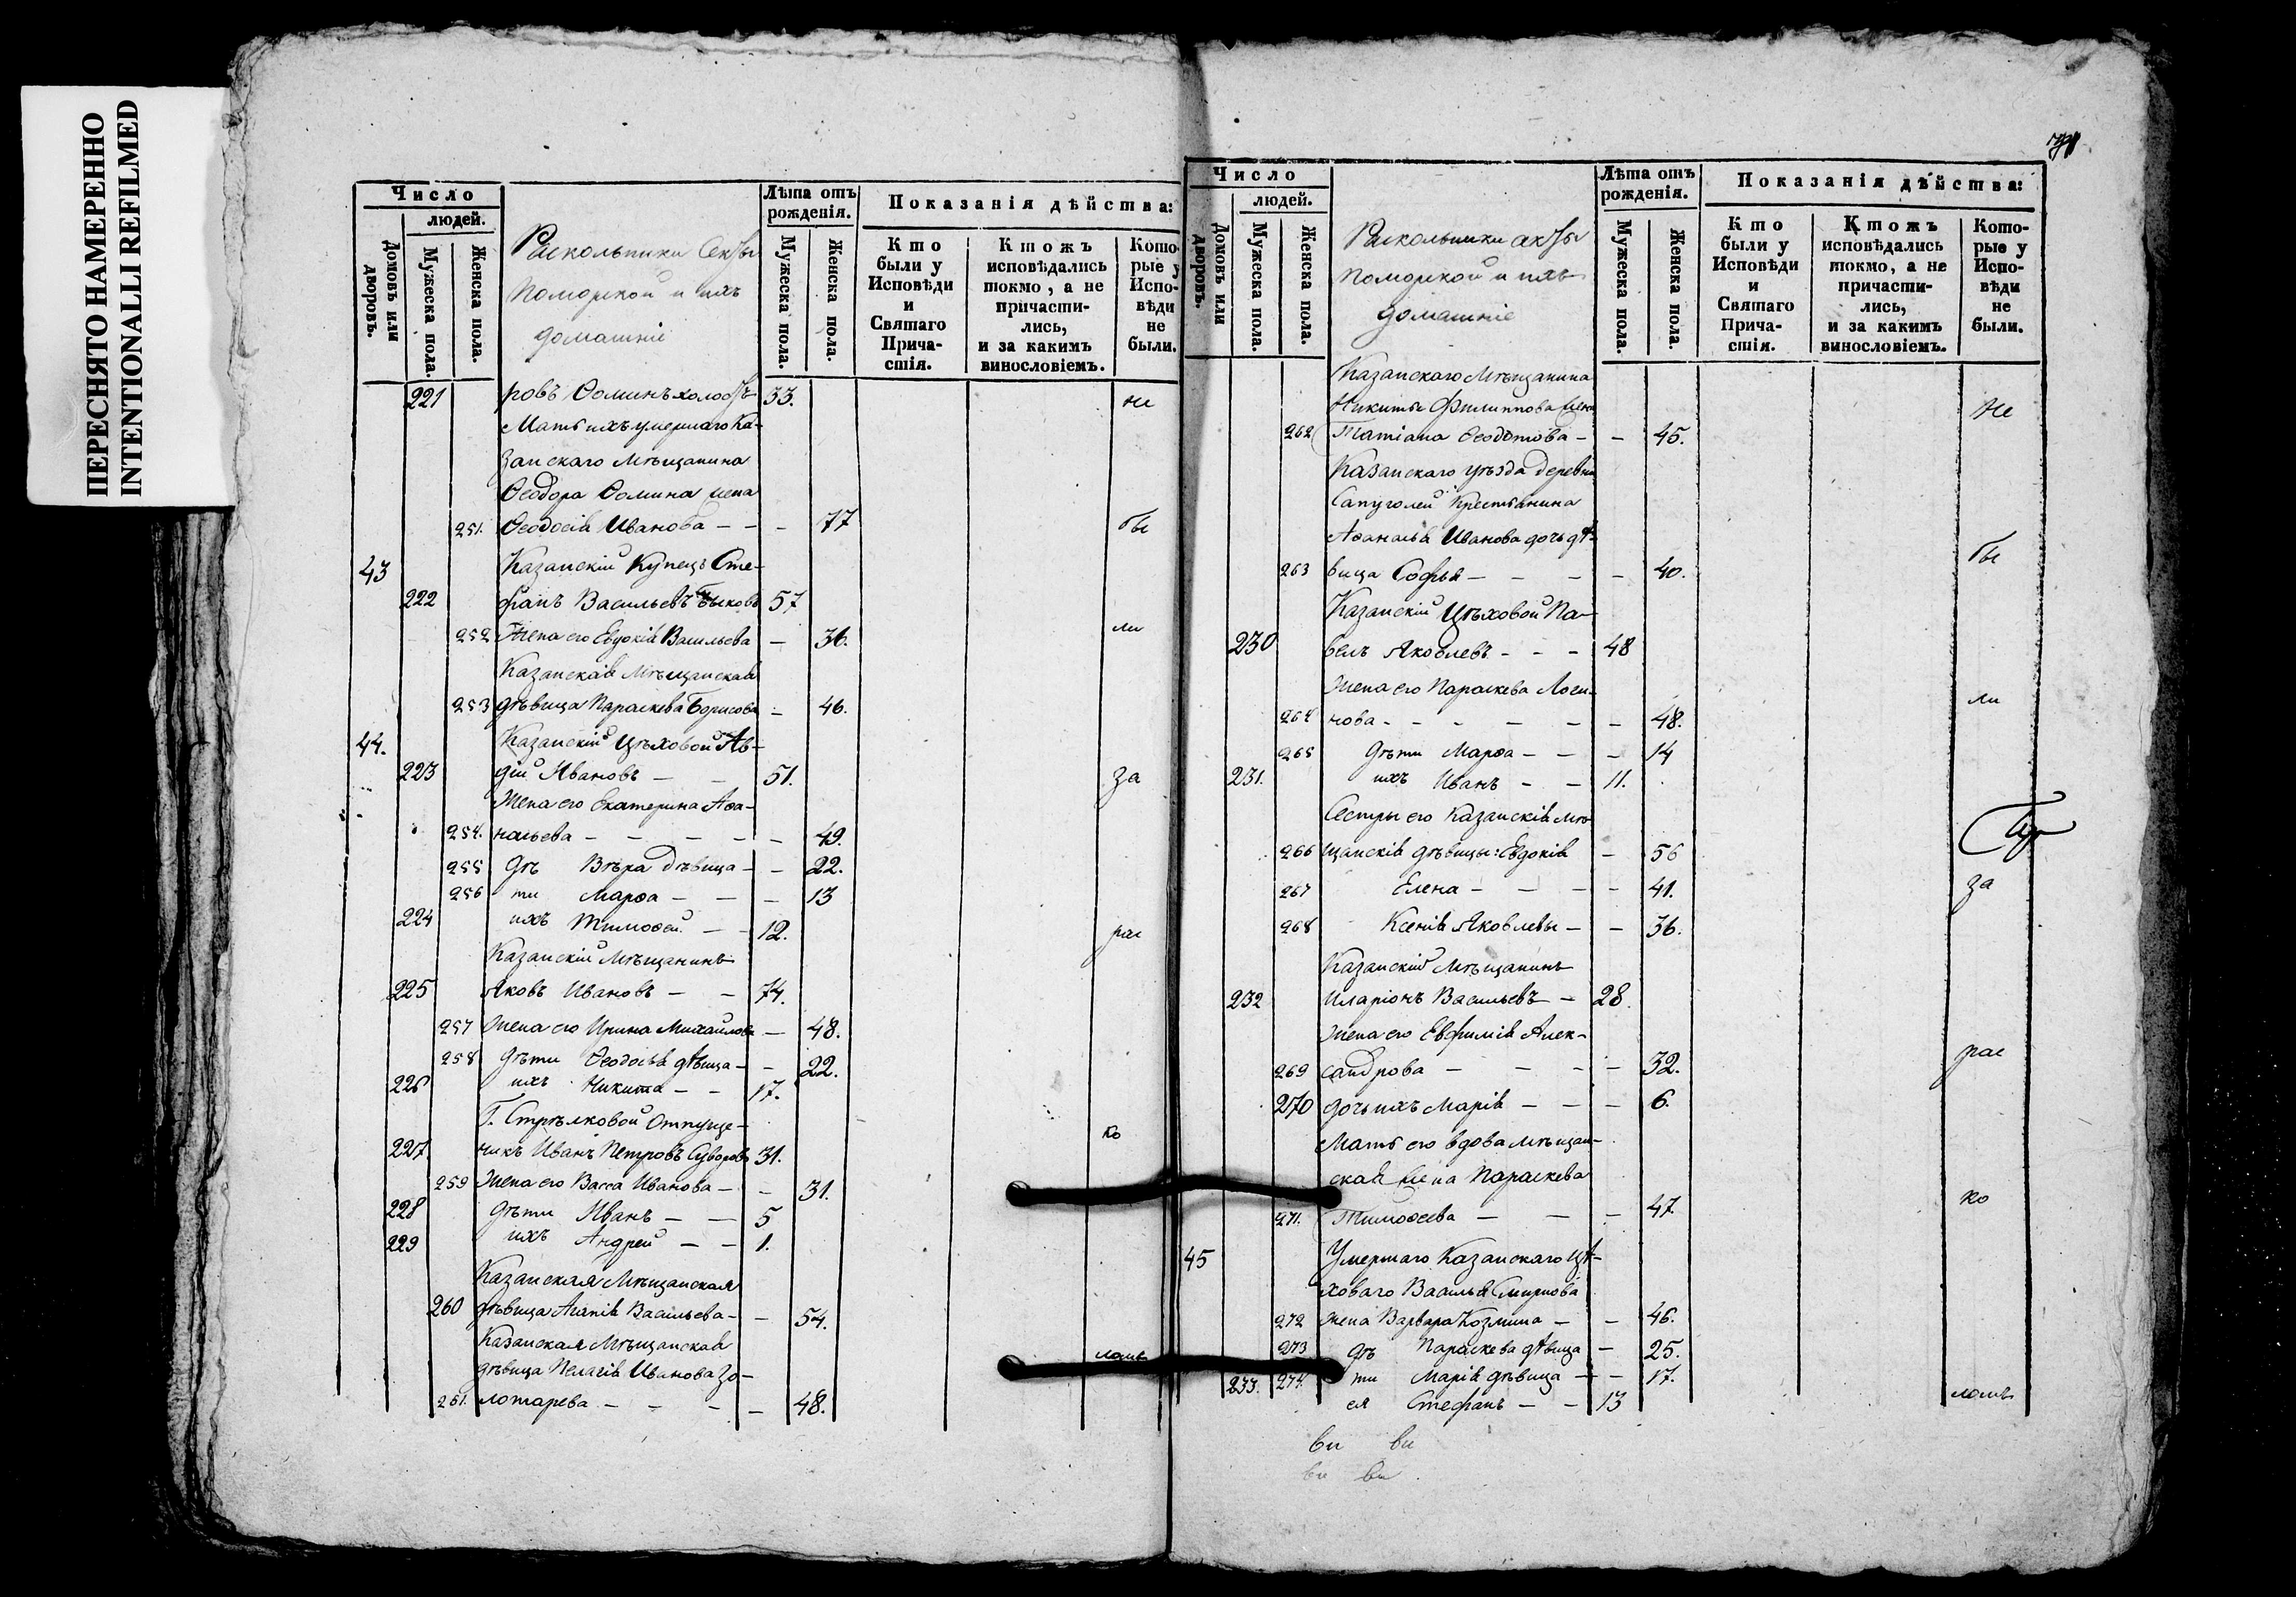 ПЕРЕСНЯТО НАМЕРЕННО
INTENTIONALLI REFILMED
Число
людей.
Домовъ или дворовъ.
Мужеска пола.
Женска пола.
Раскольники Секты
Поморской и ихъ
домашніе
Лѣта отъ рожденія.
Мужеска пола.
Женска пола.
Показанія дѣйства:
Кто были у Исповѣди и Святаго Прича-стія.
Ктожъ исповѣдались токмо, а не причасти-лись, и за какимъ винословіемъ.
Кото-рые у Испо-вѣди не были.
221 ровъ Ѳоминъ холостъ 33. не
Мать ихъ умершаго Ка-
занскаго Мѣщанина
Ѳеодора Ѳомина жена
251. Ѳеодосія Иванова — — — 77 бы
43 Казанскій Купецъ Сте-
222 фанъ Васильевъ Быковъ 57
252 Жена его Евдокія Васильева — 36. ли
Казанская Мѣщанская
253 дѣвица Параскева Борисова — 46.
44. Казанскій Цѣховой Ав-
223 дій Ивановъ — — 51. за
Жена его Екатерина Аѳа-
254. насьева — — — — — 49.
255 дѣ Вѣра дѣвица — — 22.
256 ти Марѳа — — — 13
224 ихъ Тимоѳей — — 12. рас
Казанскій Мѣщанинъ
225 Яковъ Ивановъ — — 74.
257 Жена его Ирина Михайлова — 48.
258 дѣти Ѳеодосья дѣвица — — 22.
226 ихъ Никита — — 17.
Г. Стрѣлковой Отпуще-
227 никъ Иванъ Петровъ Суворовъ 31. ко
259 Жена его Васса Иванова — — 31.
228 дѣти Иванъ — — 5
229 ихъ Андрей — — 1.
Казанская Мѣщанская
260 дѣвица Агапія Васильева — — 54.
Казанская Мѣщанская
дѣвица Пелагія Иванова Зо- ломъ
261. лотарева — — — — 48.
Число
людей.
Домовъ или дворовъ.
Мужеска пола.
Женска пола.
Раскольники секты
Поморской и ихъ
домашніе
Лѣта отъ рожденія.
Мужеска пола.
Женска пола.
Показанія дѣйства:
Кто были у Исповѣди и Святаго Прича-стія.
Ктожъ исповѣдались токмо, а не причасти-лись, и за какимъ винословіемъ.
Кото-рые у Испо-вѣди не были.
Казанскаго Мѣщанина
Никиты Филиппова жена не
262 Татіана Ѳеодотова — — 45.
Казанскаго уѣзда деревни
Сапуголей Крестьянина
Аѳанасья Иванова дочь дѣ- бы
263 вица Софья — — — — 40.
Казанскій Цѣховой Па-
230 велъ Яковлевъ — — — 48
Жена его Параскева Логи- ли
264 нова — — — — — — 48.
265 дѣти Марѳа — — — 14
231. ихъ Иванъ — — 11.
Сестры его Казанскія мѣ-
266 щанскія дѣвицы: Евдокія — 56
267 Елена — — — — 41. за
268 Ксенія Яковлевы — — 36.
Казанскій Мѣщанинъ
232 Иларіонъ Васильевъ — 28.
Жена его Евфимія Алек- рас
269 сандрова — — — — 32.
270 дочь ихъ Марія — — — 6.
Мать его вдова мѣщан-
ская жена Параскева ко
271. Тимоѳеева — — — 47.
45 Умершаго Казанскаго цѣ-
ховаго Василья Смирнова
272 жена Варвара Козмина — — 46.
273 дѣ Параскева дѣвица — 25.
274. ти Марія дѣвица — — 17.
233. ея Стефанъ — — 13 ломъ
ви ви
ви ви